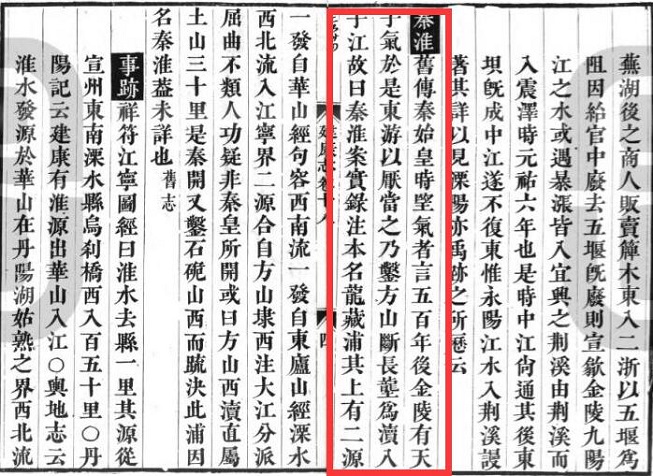 蕪湖後之商人販賣簰木東入二浙以五堰爲
阻因給官中廢去五堰旣廢則宣歙金陵九陽
江之水或遇暴漲皆入宜興之荆溪由荆溪而
入震澤時元祐六年也是時中江尚通其後東
垻旣成中江遂不復東惟永陽江水入荆溪謾
著其詳以見溧陽亦禹跡之所歷云
秦淮舊傳秦始皇時望氣者言五百年後金陵有天
子氣於是東游以厭當之乃鑿方山斷長壟爲瀆入
于江故曰秦淮案實錄注本名龍藏浦其上有二源
建康志卷十八 四
一發自華山經句容西南流一發自東廬山經溧水
西北流入江寧界二源合自方山埭西注大江分派
屈曲不類人功疑非秦皇所開或曰方山西瀆直屬
土山三十里是秦開又鑿石硊山西而䟽決此浦因
名秦淮蓋未詳也 舊志
事跡祥符江寧圖經曰淮水去縣一里其源從
宣州東南溧水縣烏刹橋西入百五十里○丹
陽記云建康有淮源出華山入江○輿地志云
淮水發源於華山在丹陽湖姑熟之界西北流